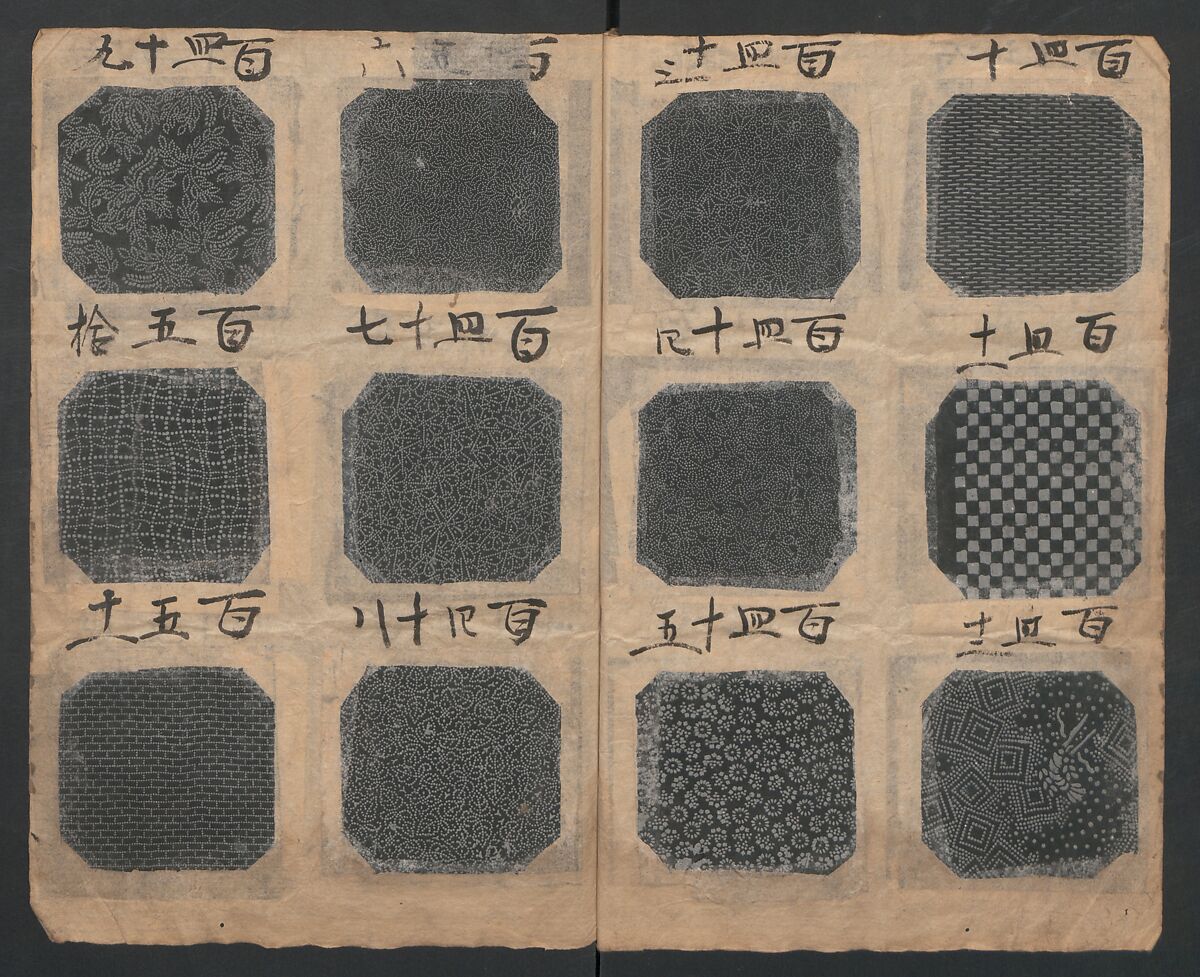 百四十
百四十一
百四十二
百四十三
百四十四
百四十五
百五 六
百四十七
百四十八
百四十九
百五拾
百五十一